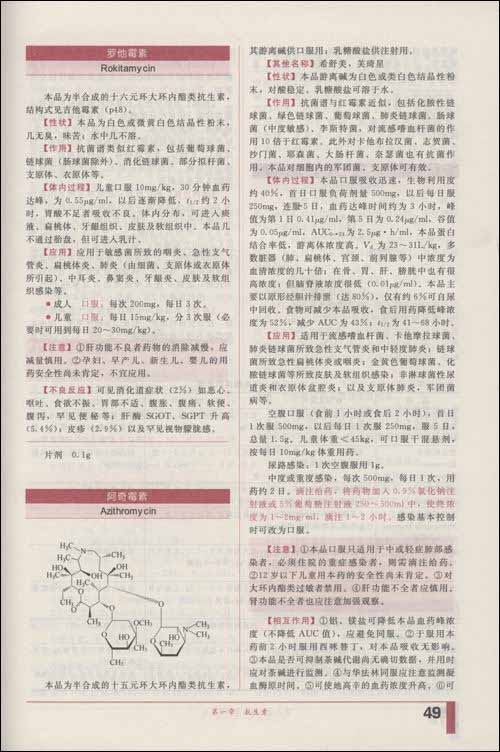 罗他霉素
Rokitamycin
本品为半合成的十六元环大环内酯类抗生素,
结构式见吉他霉素(p48)。
【性状】本品为白色或微黄白色结晶性粉末,
几无臭,味苦;水中几不溶。
【作用】抗菌谱类似红霉素,包括葡萄球菌、
链球菌(肠球菌除外)、消化链球菌、部分拟杆菌、
支原体、衣原体等。
【体内过程】儿童口服10mg/kg,30分钟血药
达峰,为0.55μg/ml,以后逐渐降低,t1/2约2小
时,胃酸不足者吸收不良。体内分布,可进入痰
液、扁桃体、牙龈组织、皮肤及软组织中。本品几
不通过胎盘,但可进入乳汁。
【应用】应用于敏感菌所致的咽炎、急性支气
管炎、扁桃体炎、肺炎(由细菌、支原体或衣原体
所引起)、中耳炎、鼻窦炎、牙龈炎、皮肤及软组
织感染等。
● 成人 口服,每次200mg,每日3次。
● 儿童 口服,每日15mg/kg,分3次服(必
要时可用到每日20～30mg/kg)。
【注意】①肝功能不良者药物的消除减慢,应
减量慎用。②孕妇、早产儿、新生儿、婴儿的用
药安全性尚未肯定,不宜应用。
【不良反应】可见消化道症状(2%)如恶心、
呕吐、食欲不振、胃部不适、腹胀、腹痛、软便、
腹泻,罕见便秘等;肝酶SGOT、SGPT升高
(5.4%);皮疹(2.9%)以及罕见视物朦胧感。
片剂 0.1g
阿奇霉素
Azithromycin
本品为半合成的十五元环大环内酯类抗生素,
其游离碱供口服用;乳糖酸盐供注射用。
【其他名称】希舒美,芙琦星
【性状】本品游离碱为白色或类白色结晶性粉
末,对酸稳定。乳糖酸盐可溶于水。
【作用】抗菌谱与红霉素近似,包括化脓性链
球菌、绿色链球菌、葡萄球菌、肺炎链球菌、肠球
菌(中度敏感)、李斯特菌,对流感嗜血杆菌的作
用10倍于红霉素。此外对卡他布拉汉菌、志贺菌、
沙门菌、耶森菌、大肠杆菌、奈瑟菌也有抗菌作
用。本品对细胞内的军团菌、支原体可有效。
【体内过程】本品口服吸收迅速,生物利用度
约40%,首日口服负荷剂量500mg,以后每日服
250mg,连服5日,血药达峰时间约为3小时,峰
值为第1日0.41μg/ml,第5日为0.24μg/ml,谷值
为0.05μg/ml,AUC0~24为2.5μg·h/ml。本品蛋白
结合率低,游离体浓度高。Vd为23～31L/kg,多
数脏器(肺、扁桃体、宫颈、前列腺等)中浓度为
血清浓度的几十倍;在骨、胃、肝、膀胱中也有很
高浓度;但脑脊液浓度很低(0.01μg/ml)。本品主
要以原形经胆汁排泄(达80%),仅有约6%可自尿
中回收。食物可减少本品吸收,食后用药降低峰浓
度为52%,减少AUC为43%;t1/2为41～68小时。
【应用】适用于流感嗜血杆菌、卡他摩拉球菌、
肺炎链球菌所致急性支气管炎和中轻度肺炎;链球
菌所致急性扁桃体炎或咽炎;金黄色葡萄球菌、化
脓链球菌等所致皮肤及软组织感染;非淋球菌性尿
道炎和衣原体盆腔炎;以及支原体肺炎、军团菌
病等。
空腹口服(食前1小时或食后2小时),首日
1次服500mg,以后每日1次服250mg,服5日,
总量1.5g。儿童体重<45kg,可口服干混悬剂,
按每日10mg/kg体重用药。
尿路感染,1次空腹服用1g。
中度或重度感染,每次500mg,每日1次,用
药约2日。滴注给药:将药物加入0.9%氯化钠注
射液或5%葡萄糖注射液250～500ml中,使终浓
度为1～2mg/ml,滴注1～2小时。感染基本控制
时可改为口服。
【注意】①本品口服只适用于中或轻症肺部感
染者,必须住院的重症感染者,则需滴注给药。
②12岁以下儿童用本药的安全性尚未肯定。③对
大环内酯类过敏者禁用。④肝功能不全者应慎用,
肾功能不全者也应注意加强观察。
【相互作用】①铝、镁盐可降低本品血药峰浓
度(不降低AUC值),应避免同服。②于服用本
药前2小时服用西咪替丁,对本品吸收无影响。
③本品是否可抑制茶碱代谢尚无确切数据,并用时
应对茶碱进行监测。④与华法林同服应注意监测凝
血酶原时间。⑤可使地高辛的血药浓度升高。⑥可
第一章 抗生素
49